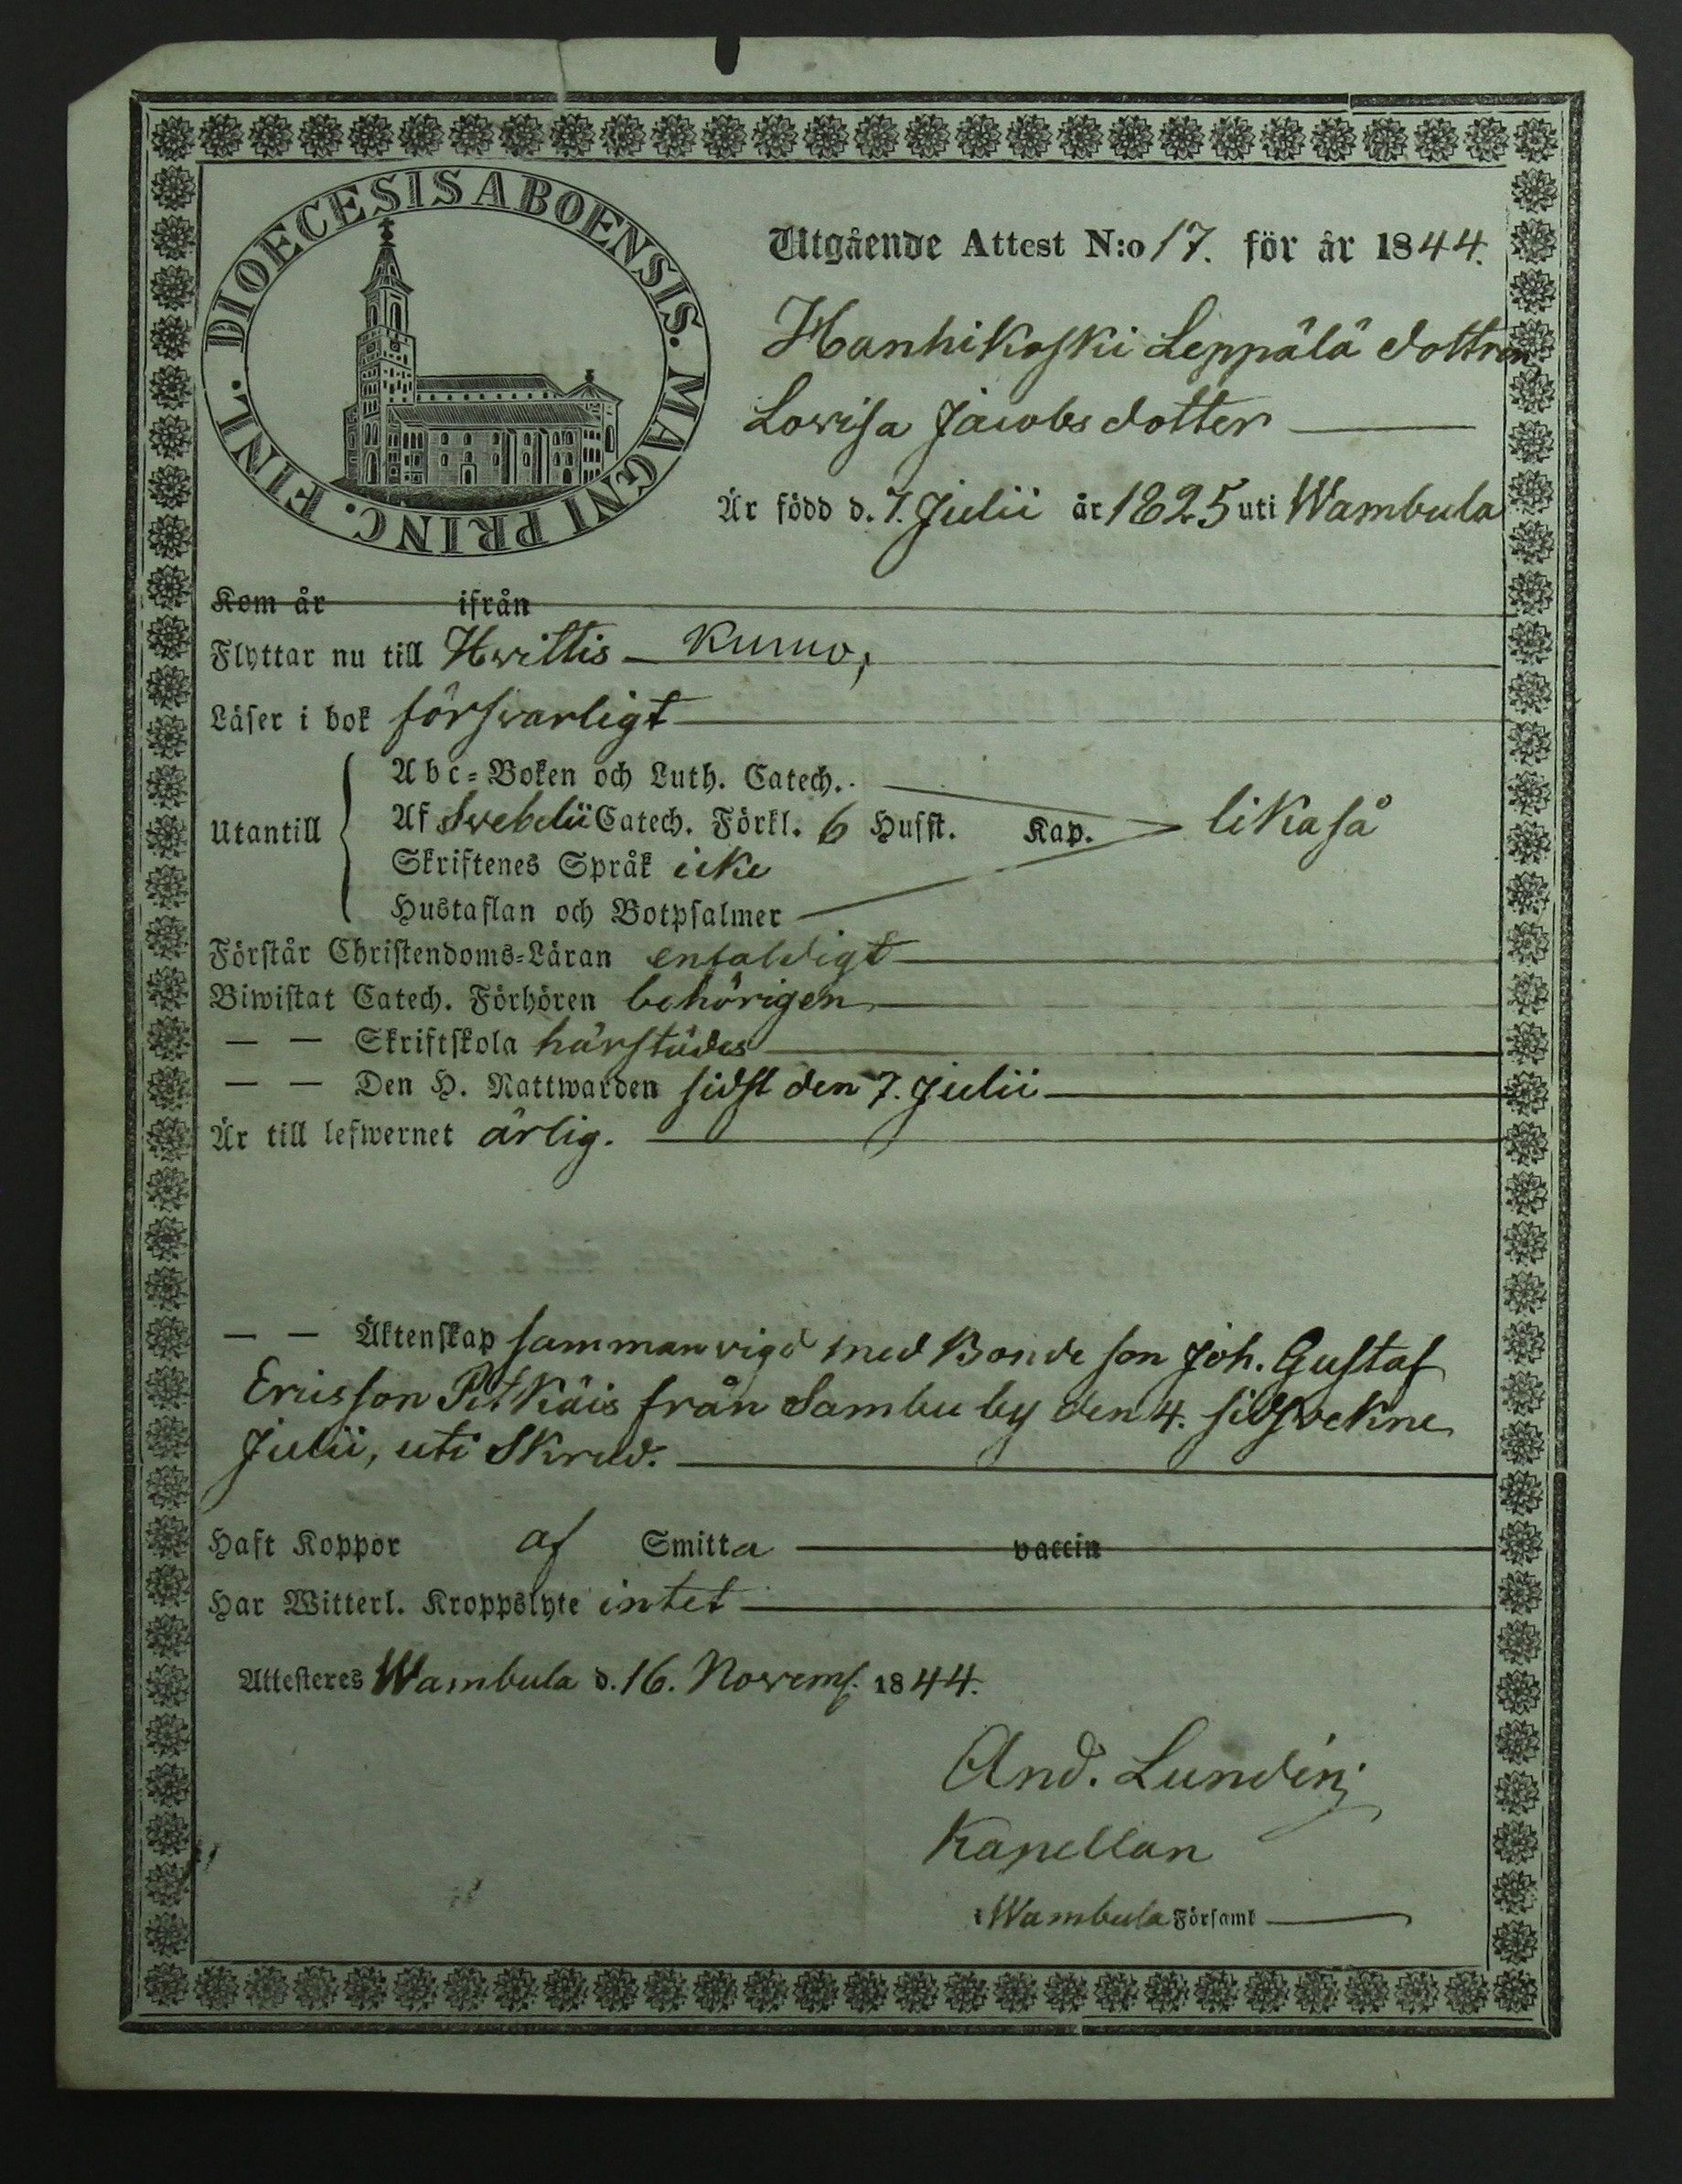 DIOECESIS ABOENSIS. MAGNI PRINC. FINL.
Utgående Attest N:o 17. för år 1844.
Hanhikoski Leppälä dottren
Lovisa Jacobsdotter
Är född d. 7. Julii år 1825 uti Wambula
Kom år ifrån
Flyttar nu till Hvittis - Kumo,
Läser i bok försvarligt
Abc-Boken och Luth. Catech.
Utantill
Af Svebelii Catech. Förkl. 6 Husst. Kap. likaså
Skriftenes Språk icke
Hustaflan och Botpsalmer
Förstår Christendoms-Läran enfaldigt
Biwistat Catech. Förhören behörigen
— — Skriftskola härstädes
— — Den H. Nattwarden sidst den 7. Julii
Är till lefwernet ärlig.
— — Äktenskap sammanvigd med Bondeson Joh. Gustaf
Ericsson Pitkäis från Sambu by den 4. sidsvekne
Julii, uti Skrud.
Haft Koppor af Smitta vaccin
Har Witterl. Kroppslyte intet
Attesteres Wambula d. 16. Novemb. 1844.
And. Lundén;
Kapellan
i Wambula Församl